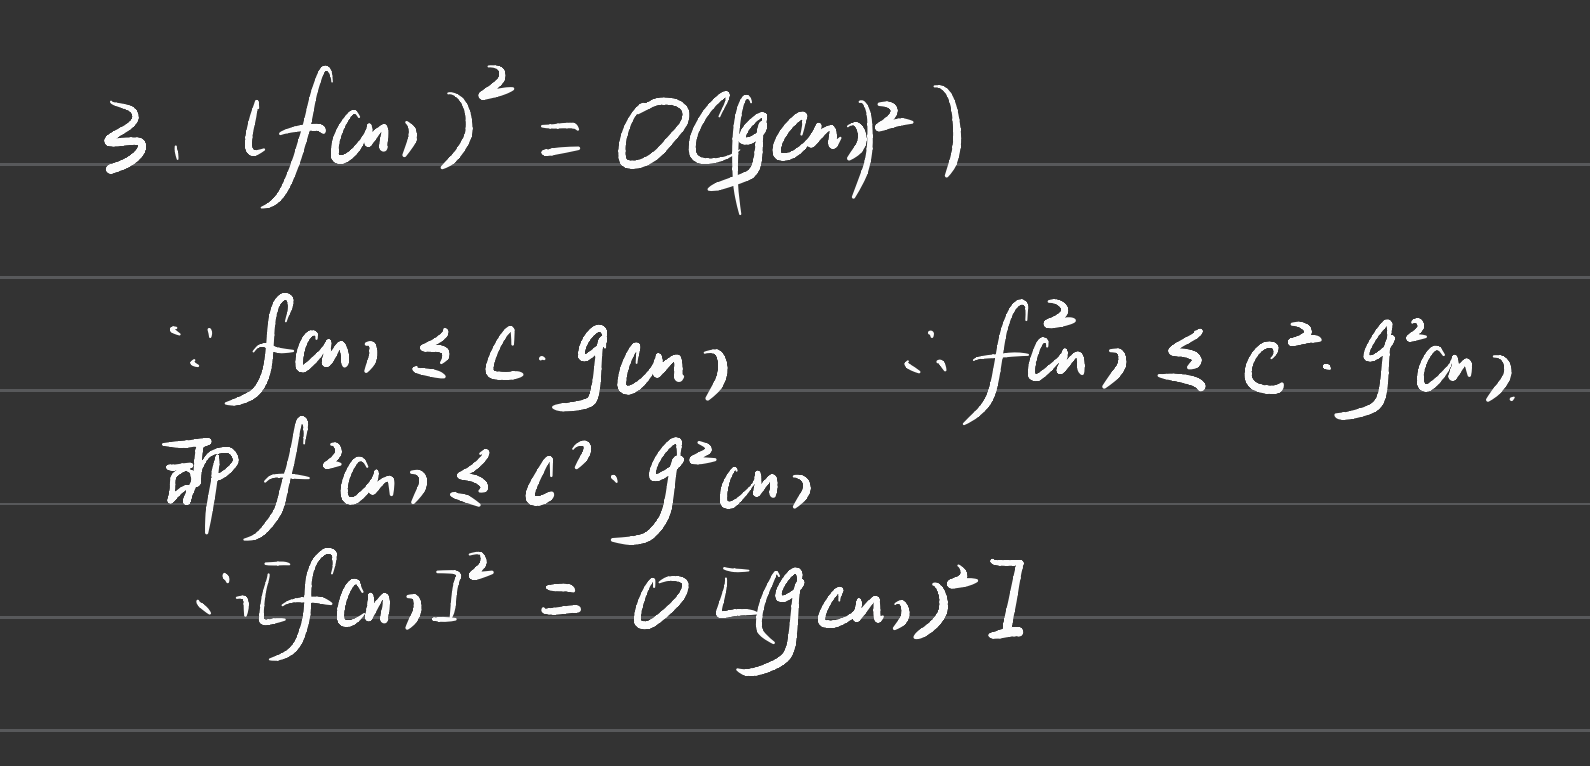 3. (f(n))² = O((g(n))²)
∵ f(n) ≤ c · g(n) ∴ f²(n) ≤ c² · g²(n).
即 f²(n) ≤ c' · g²(n)
∴ [f(n)]² = O[(g(n))²]